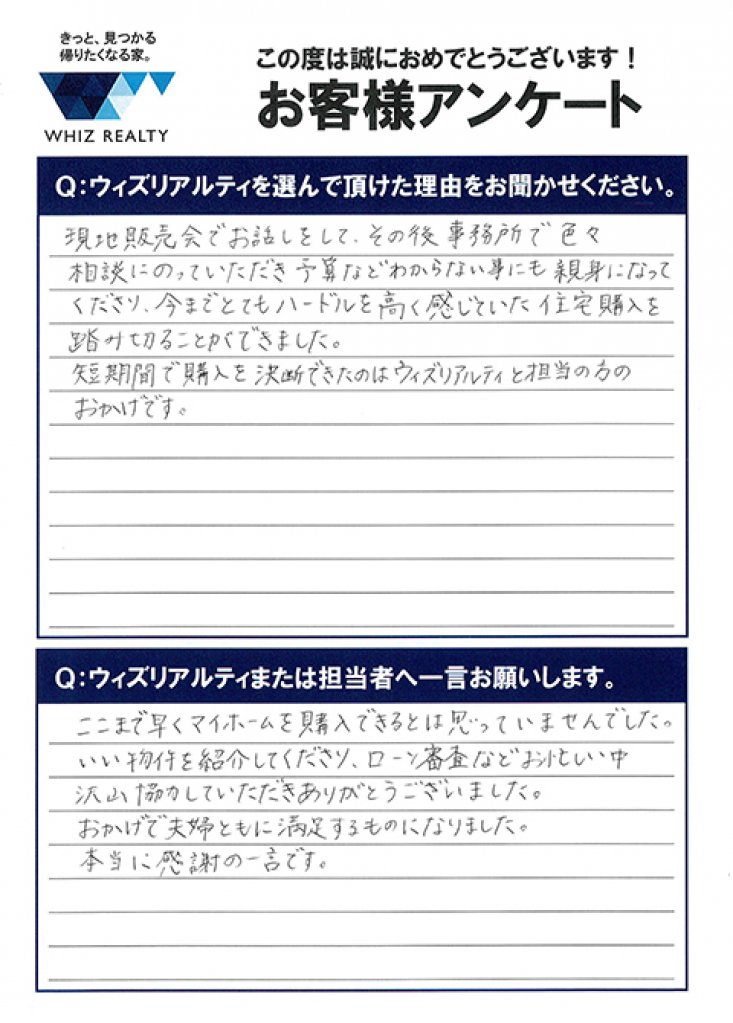 きっと、見つかる
帰りたくなる家。
WHIZ REALTY
この度は誠におめでとうございます！
お客様アンケート
Q：ウィズリアルティを選んで頂けた理由をお聞かせください。
現地販売会でお話しをして、その後事務所で色々
相談にのっていただき予算などわからない事にも親身になって
くださり、今までとてもハードルを高く感じていた住宅購入を
踏み切ることができました。
短期間で購入を決断できたのはウィズリアルティと担当の方の
おかげです。
Q：ウィズリアルティまたは担当者へ一言お願いします。
ここまで早くマイホームを購入できるとは思っていませんでした。
いい物件を紹介してくださり、ローン審査などお忙しい中
沢山協力していただきありがとうございました。
おかげで夫婦ともに満足するものになりました。
本当に感謝の一言です。